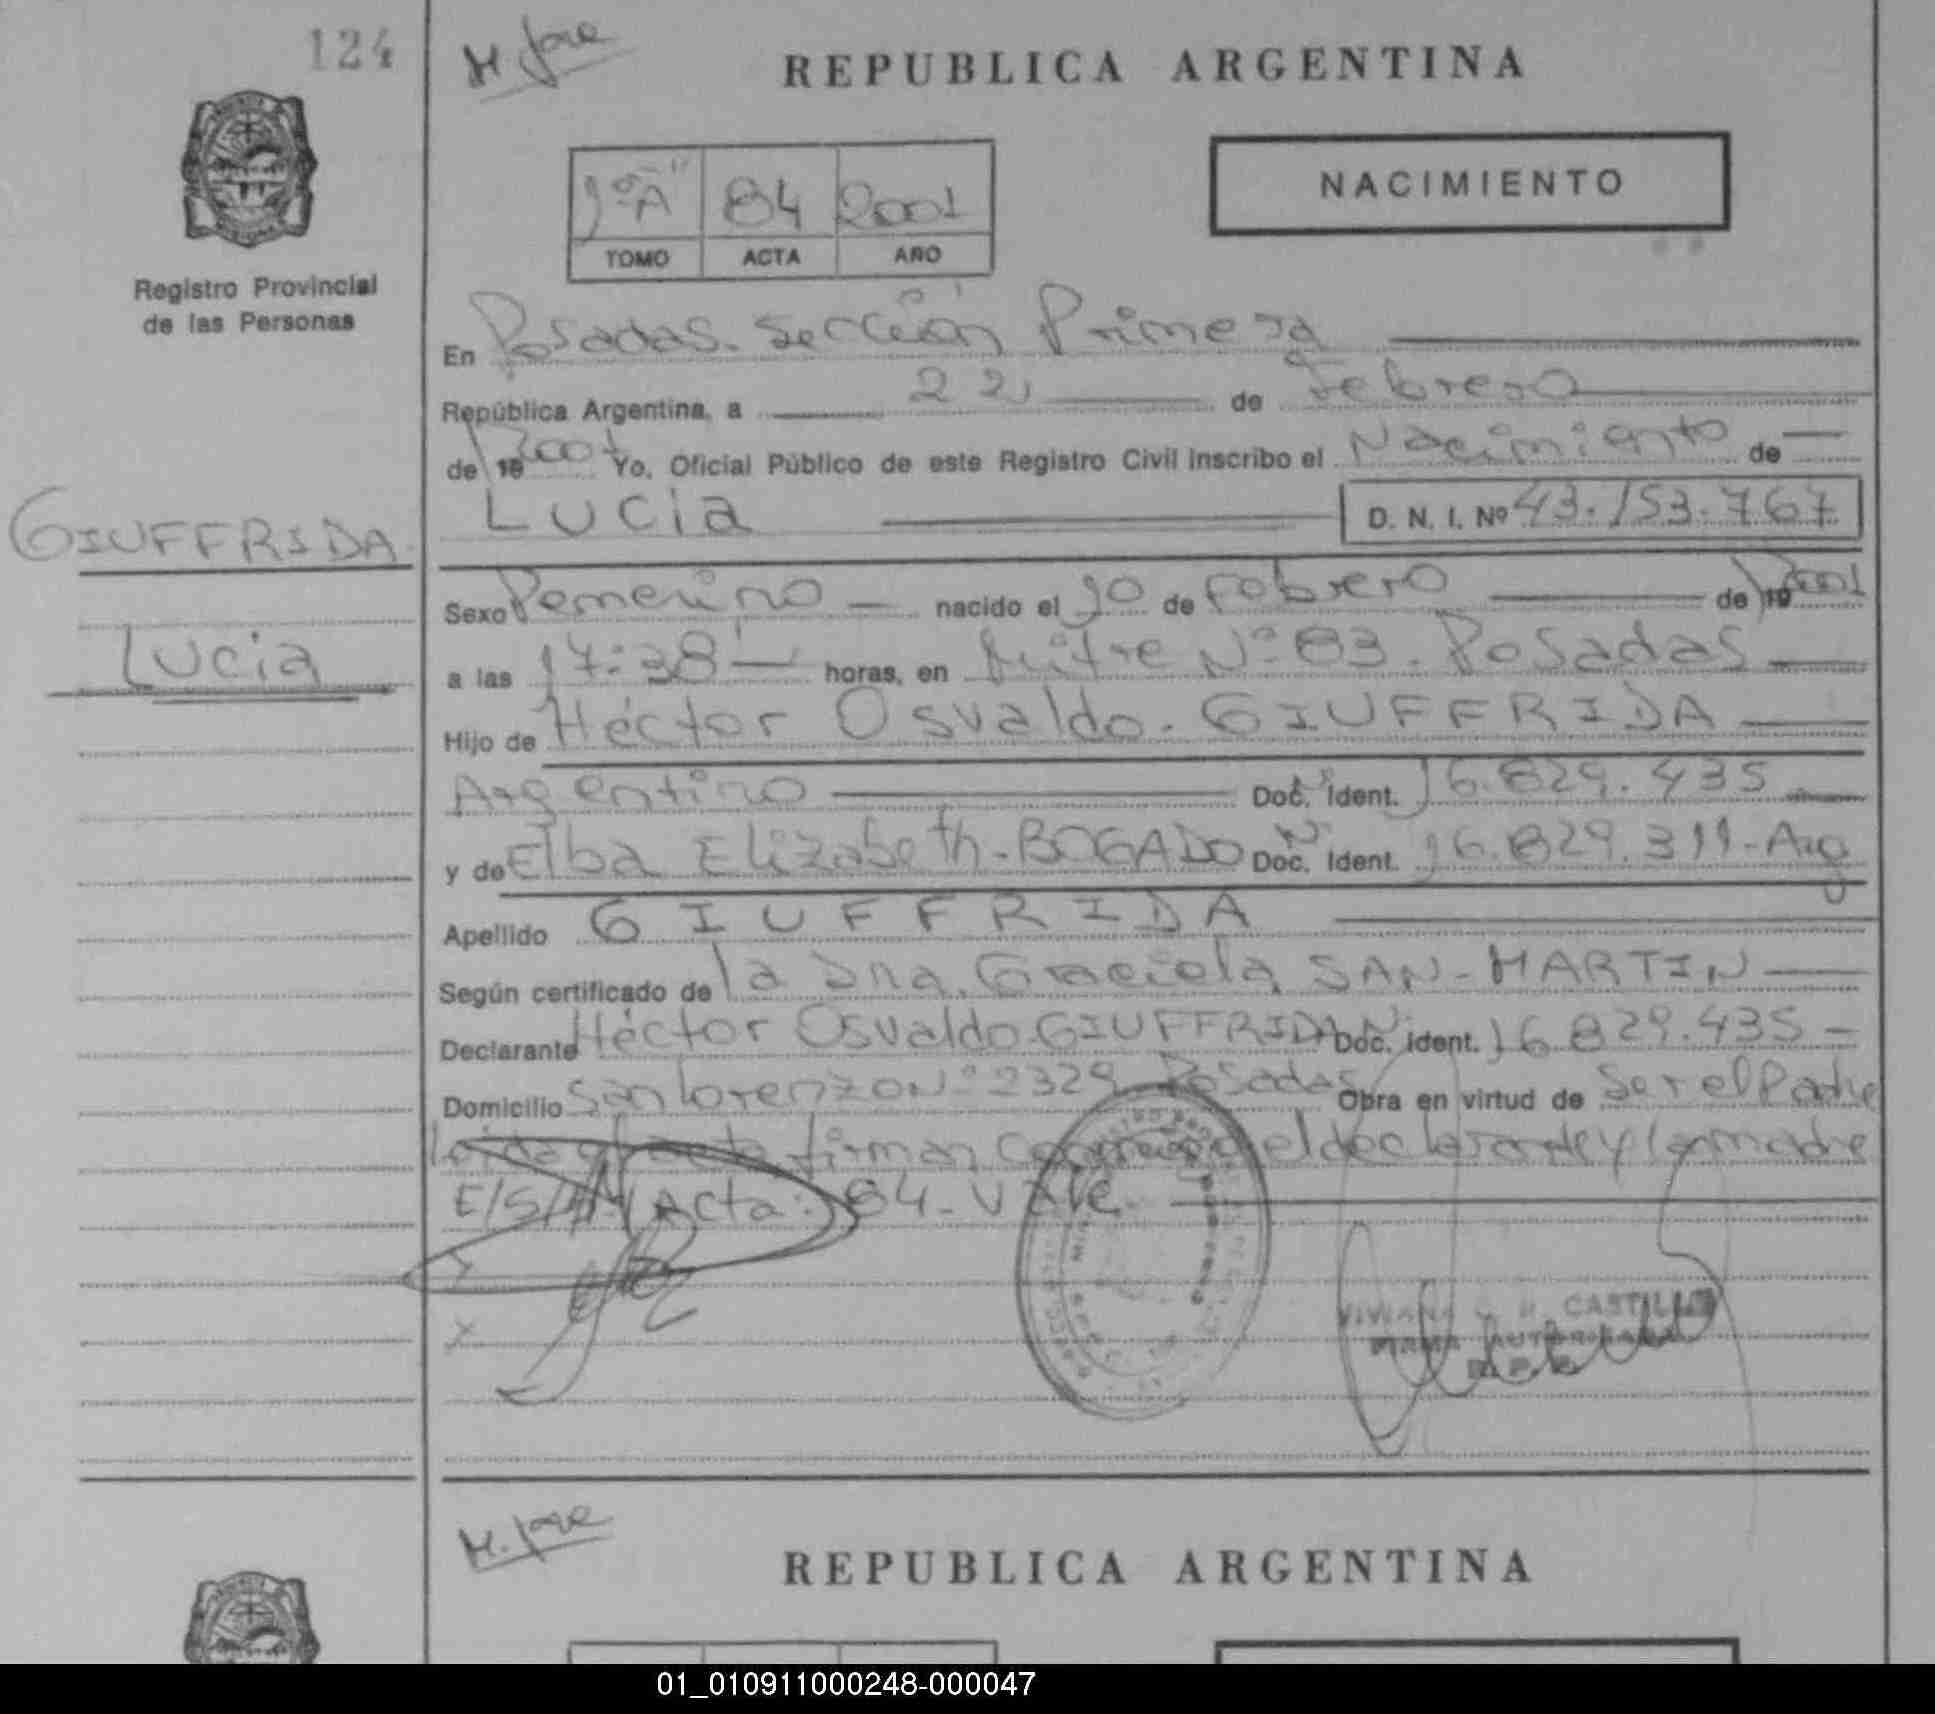 124
M. Jose
REPUBLICA ARGENTINA
1º "A" 84 2001
TOMO ACTA AÑO
NACIMIENTO
Registro Provincial
de las Personas
En Posadas. Sección Primera
República Argentina, a 22 de Febrero
de 19 2001 Yo, Oficial Público de este Registro Civil inscribo el Nacimiento de
Lucia D. N. I. Nº 43.153.767
GIUFFRIDA
Lucia
Sexo Femenino nacido el 10 de Febrero de 19 2001
a las 17:38 horas, en Mitre Nº 83. Posadas
Hijo de Héctor Osvaldo. GIUFFRIDA
Argentino Doc. Ident. 16.829.435
y de Elba Elizabeth. BOGADO Doc. Ident. 16.829.311-Arg
Apellido GIUFFRIDA
Según certificado de la Dra. Graciela SAN-MARTIN
Declarante Héctor Osvaldo GIUFFRIDA Doc. Ident. 16.829.435
Domicilio San Lorenzo Nº 2329 Posadas Obra en virtud de Ser el Padre
leida el acta firman conmigo el declarante y la madre
E/S/ Acta: 84. Vale.
CASTILLO
FIRMA AUTORIZADA
R.P.P.
M. Jose
REPUBLICA ARGENTINA
01_010911000248-000047